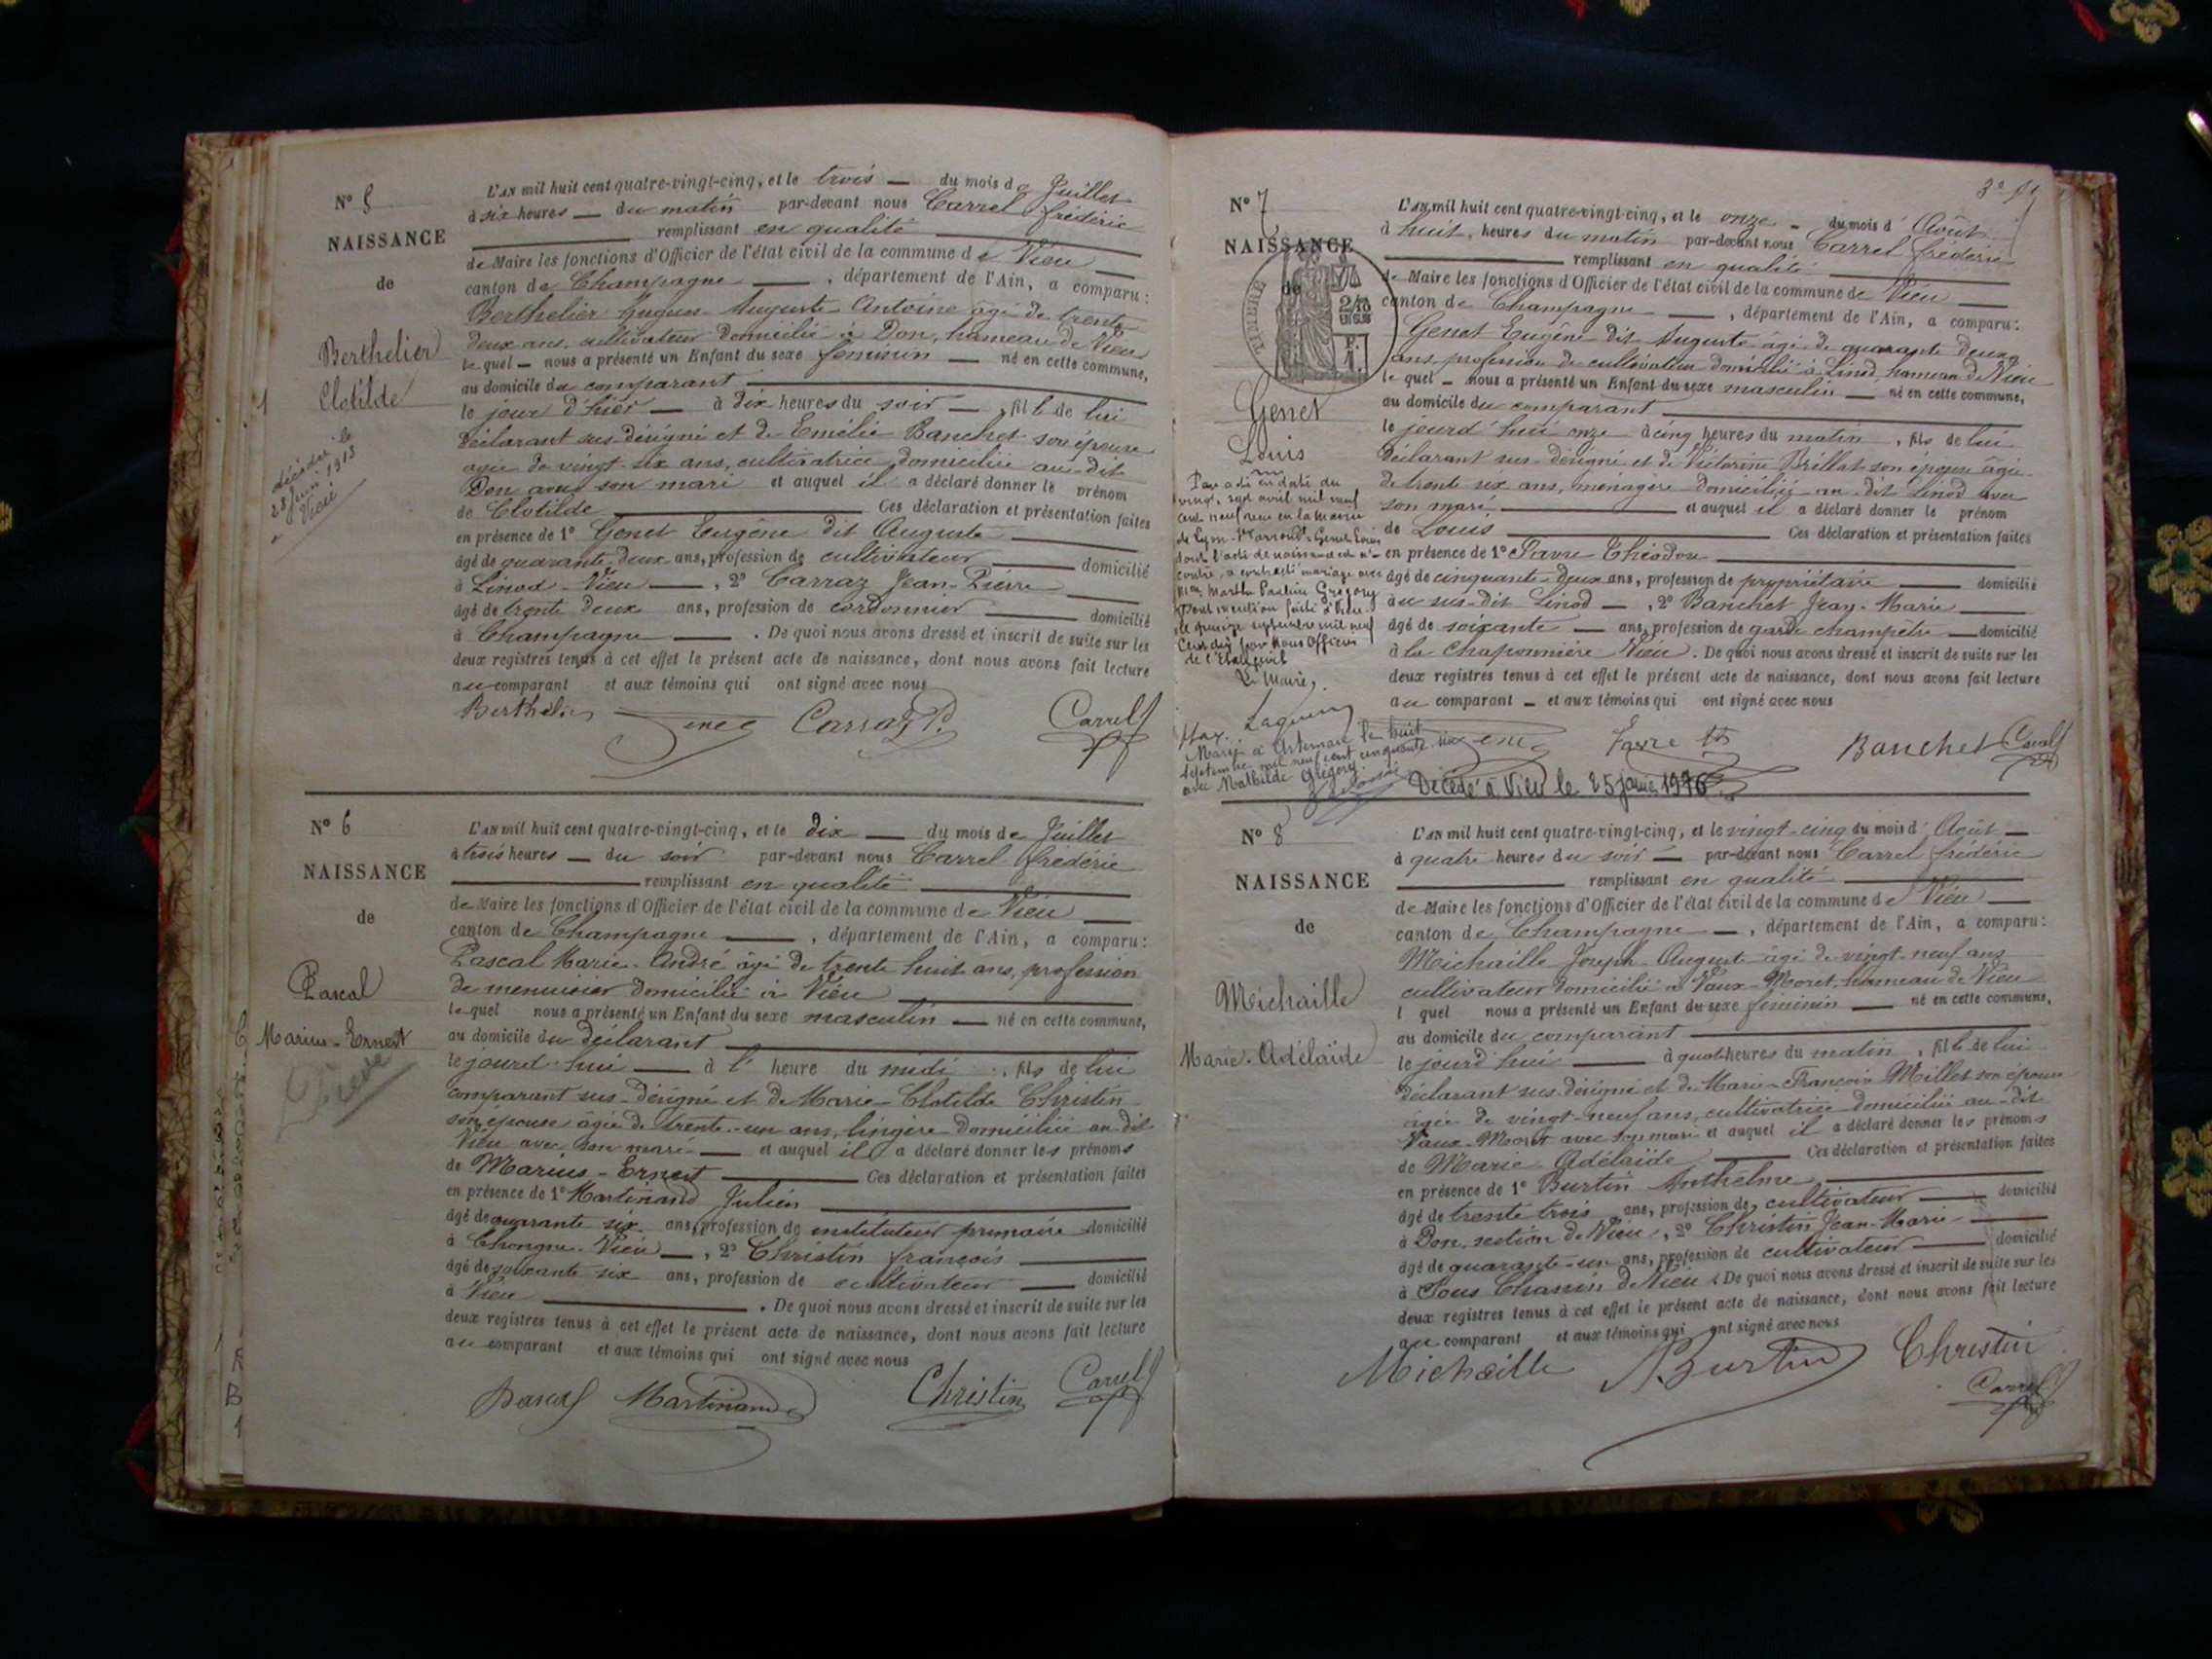 N° 5
NAISSANCE
de
Berthelier
Clotilde
décédée le
28 juin 1913
à Vieu
L'AN mil huit cent quatre-vingt-cinq, et le trois — du mois de Juillet
à six heures — du matin par-devant nous Carrel frédéric
remplissant en qualité
de Maire les fonctions d'Officier de l'état civil de la commune de Vieu
canton de Champagne —, département de l'Ain, a comparu:
Berthelier Hugues Auguste Antoine âgé de trente
deux ans, cultivateur domicilié à Don, hameau de Vieu
lequel — nous a présenté un Enfant du sexe féminin — né en cette commune,
au domicile du comparant
le jour d'hier — à dix heures du soir —, fille de lui
déclarant sus-désigné et de Emélie Banchet son épouse
agée de vingt-six ans, cultivatrice domiciliée au-dit
Don avec son mari et auquel il a déclaré donner le prénom
de Clotilde — Ces déclaration et présentation faites
en présence de 1° Genet Eugène dit Auguste
âgé de quarante-deux ans, profession de cultivateur — domicilié
à Linod-Vieu —, 2° Carraz Jean-Pierre
âgé de trente deux ans, profession de cordonnier — domicilié
à Champagne — . De quoi nous avons dressé et inscrit de suite sur les
deux registres tenus à cet effet le présent acte de naissance, dont nous avons fait lecture
au comparant et aux témoins qui ont signé avec nous
Berthelier Genet Carraz P. Carrel
N° 6
NAISSANCE
de
Pascal
Marius-Ernest
L'AN mil huit cent quatre-vingt-cinq, et le dix — du mois de Juillet
à trois heures — du soir par-devant nous Carrel frédéric
remplissant en qualité
de Maire les fonctions d'Officier de l'état civil de la commune de Vieu
canton de Champagne —, département de l'Ain, a comparu:
Pascal Marie-André âgé de trente huit ans, profession
de menuisier domicilié à Vieu
lequel nous a présenté un Enfant du sexe masculin — né en cette commune,
au domicile du déclarant
le jourd'hui — à l' heure du midi, fils de lui
comparant sus-désigné et de Marie-Clotilde Christin
son épouse âgée de trente-un ans, lingère domiciliée au-dit
Vieu avec son mari — et auquel il a déclaré donner les prénoms
de Marius-Ernest — Ces déclaration et présentation faites
en présence de 1° Martinand Julien
âgé de quarante six ans, profession de instituteur primaire domicilié
à Chongne-Vieu —, 2° Christin françois
âgé de soixante six ans, profession de cultivateur — domicilié
à Vieu — . De quoi nous avons dressé et inscrit de suite sur les
deux registres tenus à cet effet le présent acte de naissance, dont nous avons fait lecture
au comparant et aux témoins qui ont signé avec nous
Pascal Martinand Christin Carrel
3e
N° 7
NAISSANCE
de
TIMBRE
Genet
Louis
Par acte en date du
vingt, sept avril mil neuf
cent neuf reçu en la mairie
de Lyon, Genet Louis
dont l'acte de naissance est ci-
contre, a contracté mariage avec
Marthe Pauline Gregory
Pour mention faite à Vieu
le quinze septembre mil neuf
cent dix par Nous Officier
de l'Etat civil
Le Maire,
Marié à Artemare le huit
septembre mil neuf cent cinquante six
avec Mathilde Grégory
L'AN mil huit cent quatre-vingt-cinq, et le onze — du mois d'Août
à huit heures du matin par-devant nous Carrel frédéric
remplissant en qualité
de Maire les fonctions d'Officier de l'état civil de la commune de Vieu
canton de Champagne —, département de l'Ain, a comparu:
Genet Eugène dit Auguste âgé de quarante deux
ans, profession de cultivateur domicilié à Linod hameau de Vieu
lequel — nous a présenté un Enfant du sexe masculin — né en cette commune,
au domicile du comparant
le jourd'hui onze à cinq heures du matin, fils de lui
déclarant sus-désigné et de Victorine Brillat son épouse âgée
de trente six ans, ménagère domiciliée au-dit Linod avec
son mari — et auquel il a déclaré donner le prénom
de Louis — Ces déclaration et présentation faites
en présence de 1° Favre Théodore
âgé de cinquante-deux ans, profession de propriétaire — domicilié
au sus-dit Linod —, 2° Banchet Jean-Marie
âgé de soixante — ans, profession de garde champêtre — domicilié
à la Chaponnière Vieu. De quoi nous avons dressé et inscrit de suite sur les
deux registres tenus à cet effet le présent acte de naissance, dont nous avons fait lecture
au comparant — et aux témoins qui ont signé avec nous
Genet Favre Th Banchet Carrel
Décédé à Vieu le 25 janvier 1976
N° 8
NAISSANCE
de
Michaille
Marie-Adélaïde
L'AN mil huit cent quatre-vingt-cinq, et le vingt-cinq du mois d'Août —
à quatre heures du soir — par-devant nous Carrel frédéric
remplissant en qualité
de Maire les fonctions d'Officier de l'état civil de la commune de Vieu
canton de Champagne —, département de l'Ain, a comparu:
Michaille Joseph-Auguste âgé de vingt-neuf ans
cultivateur domicilié à Vaux-Moret hameau de Vieu
l quel nous a présenté un Enfant du sexe féminin — né en cette commune,
au domicile du comparant
le jourd'hui — à quat. heures du matin, fille de lui
déclarant sus-désigné et de Marie-Françoise Millet son épouse
âgée de vingt-neuf ans, cultivatrice domiciliée au-dit
Vaux-Moret avec son mari et auquel il a déclaré donner les prénoms
de Marie Adélaïde — Ces déclaration et présentation faites
en présence de 1° Burtin Anthelme
âgé de trente trois ans, profession de cultivateur — domicilié
à Don, section de Vieu, 2° Christin Jean-Marie
âgé de quarante-un ans, profession de cultivateur — domicilié
à Sous Chemin de Vieu. De quoi nous avons dressé et inscrit de suite sur les
deux registres tenus à cet effet le présent acte de naissance, dont nous avons fait lecture
au comparant et aux témoins qui ont signé avec nous
Michaille Burtin Christin
Carrel